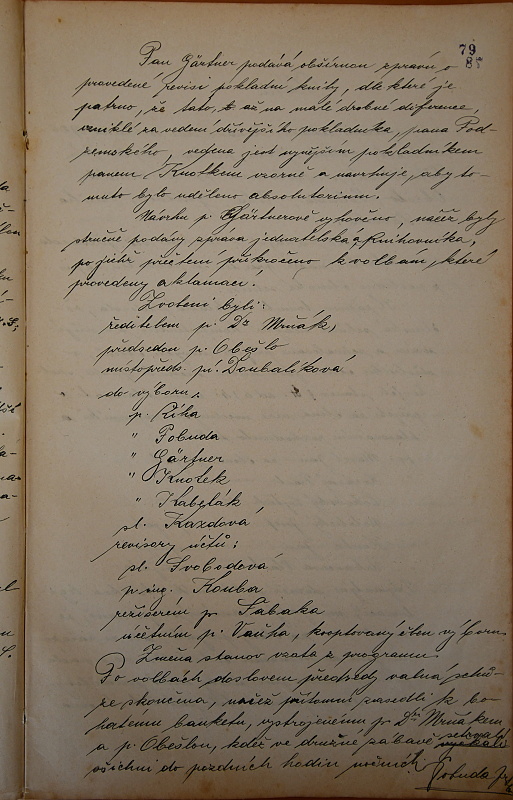 79
87
Pan Gärtner podává obšírnou zprávu o
provedené revisi pokladní knihy, dle které je
patrno, že tato, až na malé drobné diference,
vzniklé za vedení dřívějšího pokladníka, pana Pod-
zemského, vedena jest nynějším pokladníkem
panem Knotkem vzorně a navrhuje, aby to-
muto bylo uděleno absolutorium.
Návrhu p. Gärtnerově vyhověno, načež byly
stručně podány zpráva jednatelská a knihovníka,
po jichž přečtení přikročeno k volbám, které
provedeny aklamací.
Zvoleni byli:
ředitelem p. Dr Mrňák,
předsedou p. Obešlo
místopředs. pí. Doubalíková
do výboru:
p. Říha
" Pobuda
" Gärtner
" Knotek
" Kabelák
sl. Kazdová
revisory účtů:
sl. Svobodová
p. ing. Kouba
režisérem p. Sabaka
účetním p. Vaňha, kooptovaný člen výboru
Změna stanov vzata z programu.
Po volbách doslovem předsedy valná schů-
ze skončena, načež přítomní zasedli k bo-
hatému banketu, vystrojenému p. Drem Mrňákem
a p. Obešlou, kdež ve družné zábavě setrvali
všichni do pozdních hodin nočních.
Pobuda